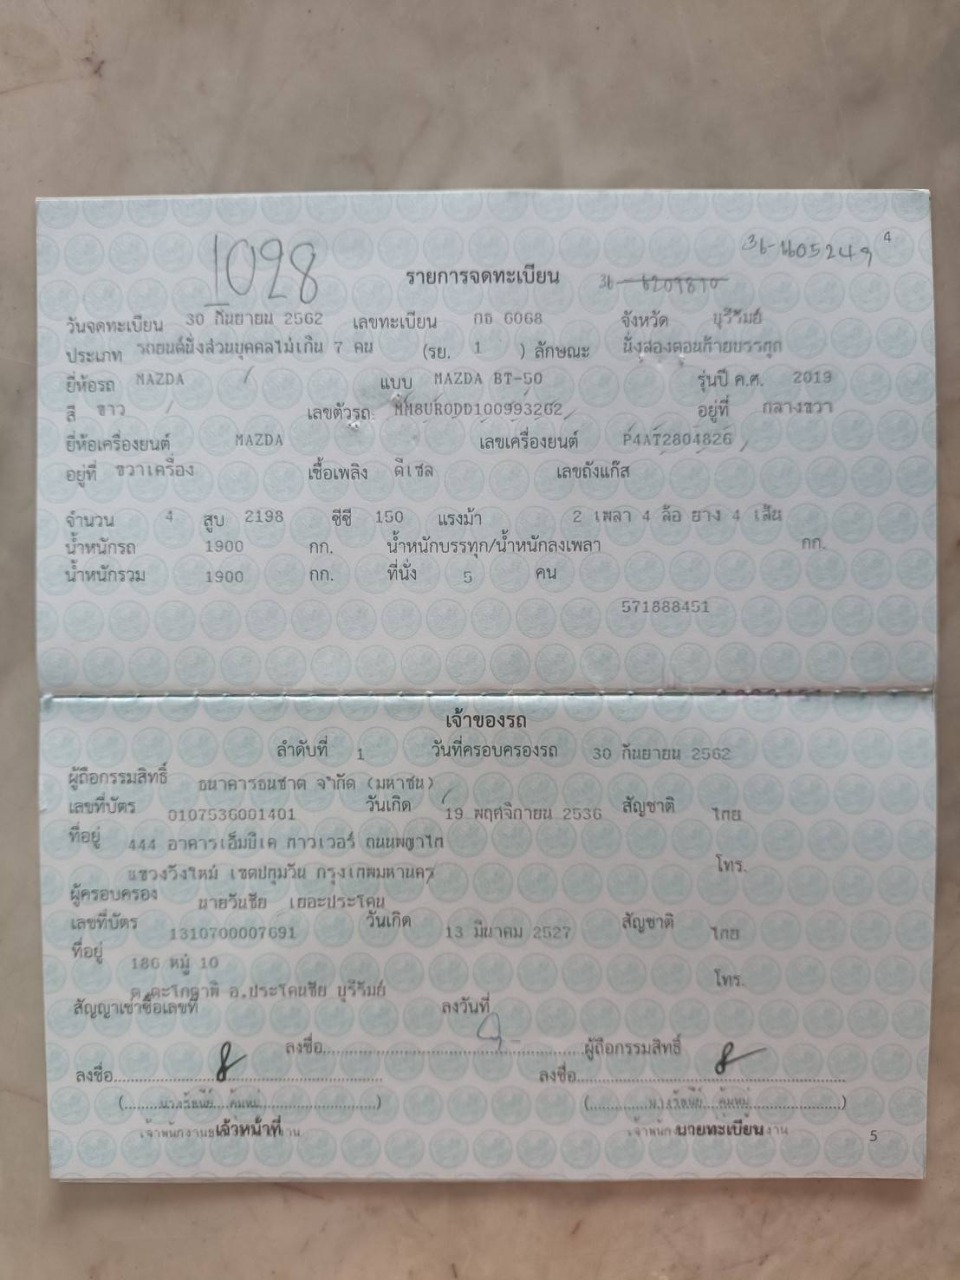 4
1028
36-ฆ05249
รายการจดทะเบียน
วันจดทะเบียน 30 กันยายน 2562 เลขทะเบียน กธ 6068 จังหวัด บุรีรัมย์
ประเภท รถยนต์นั่งส่วนบุคคลไม่เกิน 7 คน (รย. 1 ) ลักษณะ นั่งสองตอนท้ายบรรทุก
ยี่ห้อรถ MAZDA แบบ MAZDA BT-50 รุ่นปี ค.ศ. 2019
สี ขาว เลขตัวรถ MM8UR0DD100993262 อยู่ที่ กลางขวา
ยี่ห้อเครื่องยนต์ MAZDA เลขเครื่องยนต์ P4AT2804826
อยู่ที่ ขวาเครื่อง เชื้อเพลิง ดีเซล เลขถังแก๊ส
จำนวน 4 สูบ 2198 ซีซี 150 แรงม้า 2 เพลา 4 ล้อ ยาง 4 เส้น
น้ำหนักรถ 1900 กก. น้ำหนักบรรทุก/น้ำหนักลงเพลา กก.
น้ำหนักรวม 1900 กก. ที่นั่ง 5 คน
571888451
เจ้าของรถ
ลำดับที่ 1 วันที่ครอบครองรถ 30 กันยายน 2562
ผู้ถือกรรมสิทธิ์ ธนาคารธนชาต จำกัด (มหาชน)
เลขที่บัตร 0107536001401 วันเกิด 19 พฤศจิกายน 2536 สัญชาติ ไทย
ที่อยู่ 444 อาคารเอ็มบีเค ทาวเวอร์ ถนนพญาไท
แขวงวังใหม่ เขตปทุมวัน กรุงเทพมหานคร โทร.
ผู้ครอบครอง นายวันชัย เยอะประโคน
เลขที่บัตร 1310700007691 วันเกิด 13 มีนาคม 2527 สัญชาติ ไทย
ที่อยู่ 186 หมู่ 10
ต.ตะโกตาพิ อ.ประโคนชัย บุรีรัมย์ โทร.
สัญญาเช่าซื้อเลขที่ ลงวันที่
ลงชื่อ ผู้ถือกรรมสิทธิ์
ลงชื่อ ลงชื่อ
เจ้าหน้าที่ นายทะเบียน
5